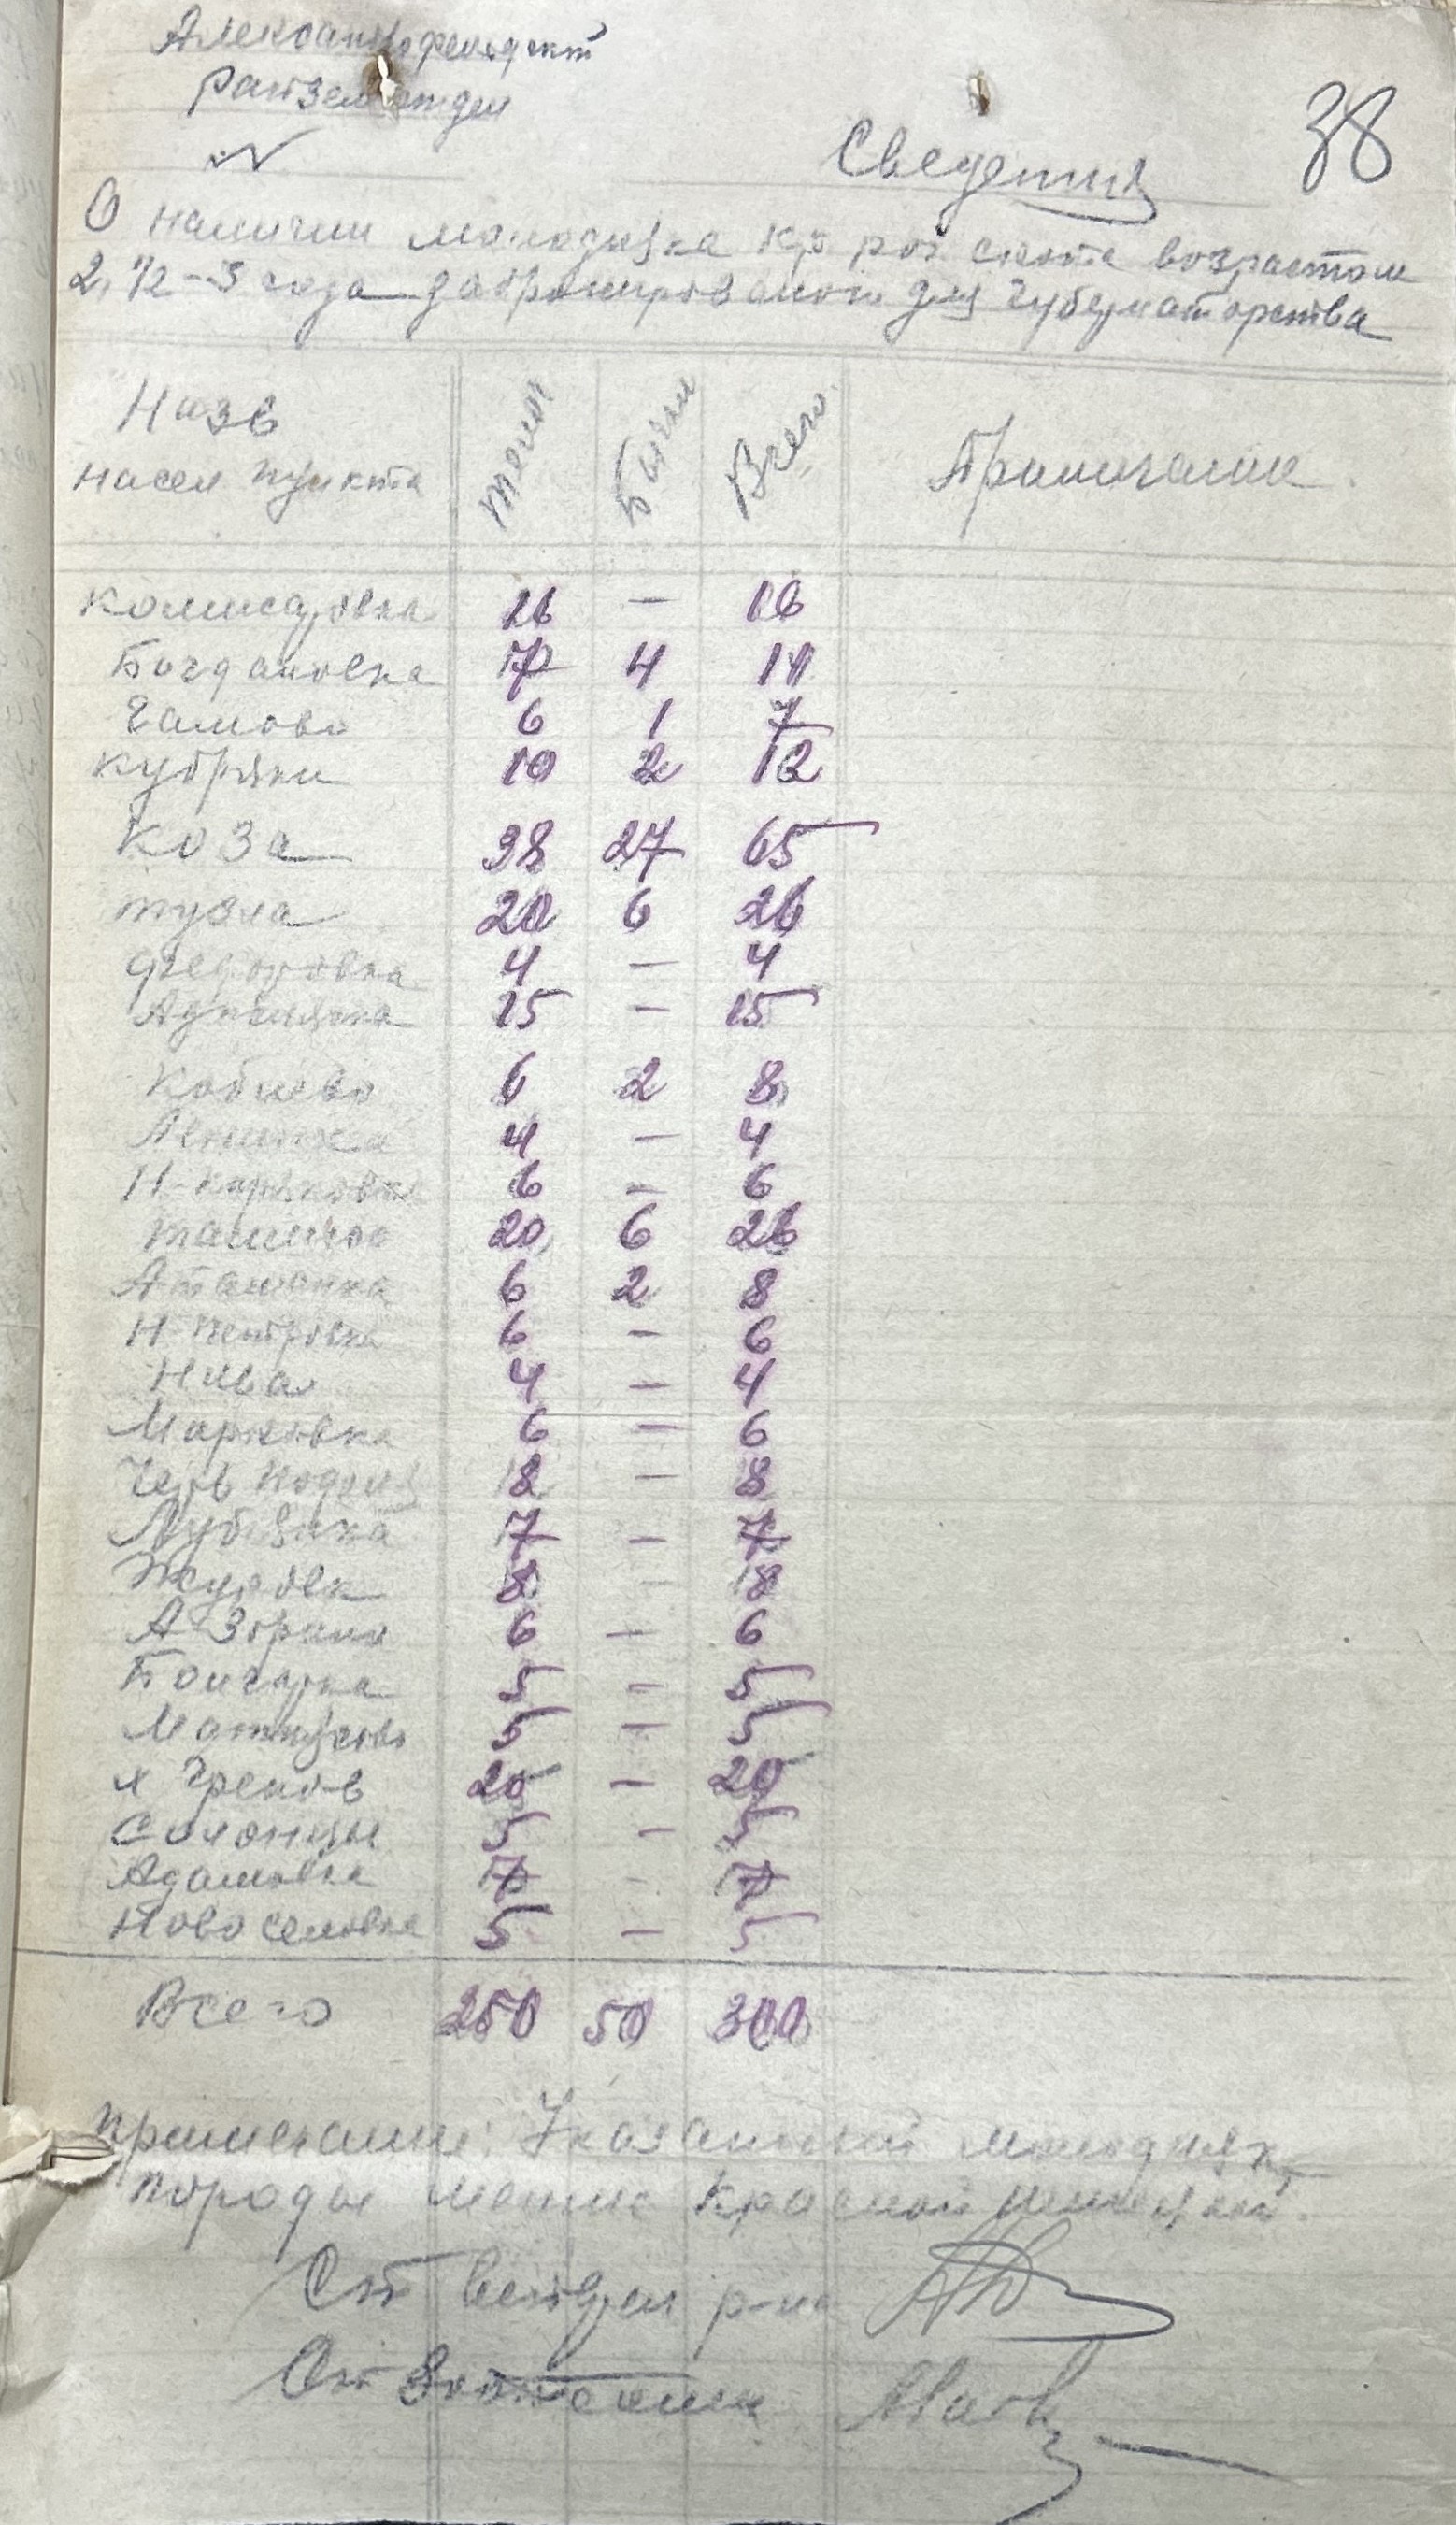 Александрфельдский
Райземотдел
№
38
Сведения
О наличии молодняка кр рог скота возрастом
2, 1/2-3 года забронированого для губернаторства
Назв насел пункта Телок Бычки Всего Примечание
Комисаровка 16 — 16
Богдановка 7 4 11
Гамово 6 1 7
Кубряки 10 2 12
Коза 38 27 65
Тузла 20 6 26
Федоровка 4 — 4
15 — 15
Коблево 6 2 8
Ленинка 4 — 4
Н-Карловка 6 — 6
Ташино 20 6 26
Атаманка 6 2 8
Н-Петровка 6 — 6
Нива 4 — 4
Марковка 6 — 6
Черв Подоля 8 — 8
Лубянка 7 — 7
Журовк 8 — 8
А-Зорино 6 — 6
Бончарка 5 — 5
5 — 5
х Греков 20 — 20
Солонцы 5 — 5
Адамовка 7 — 7
Новоселовка 5 — 5
Всего 250 50 300
Примечание: Указанный молодняк,
породы метис красной немецкой.
Ст р-на
Ст Зоотехник